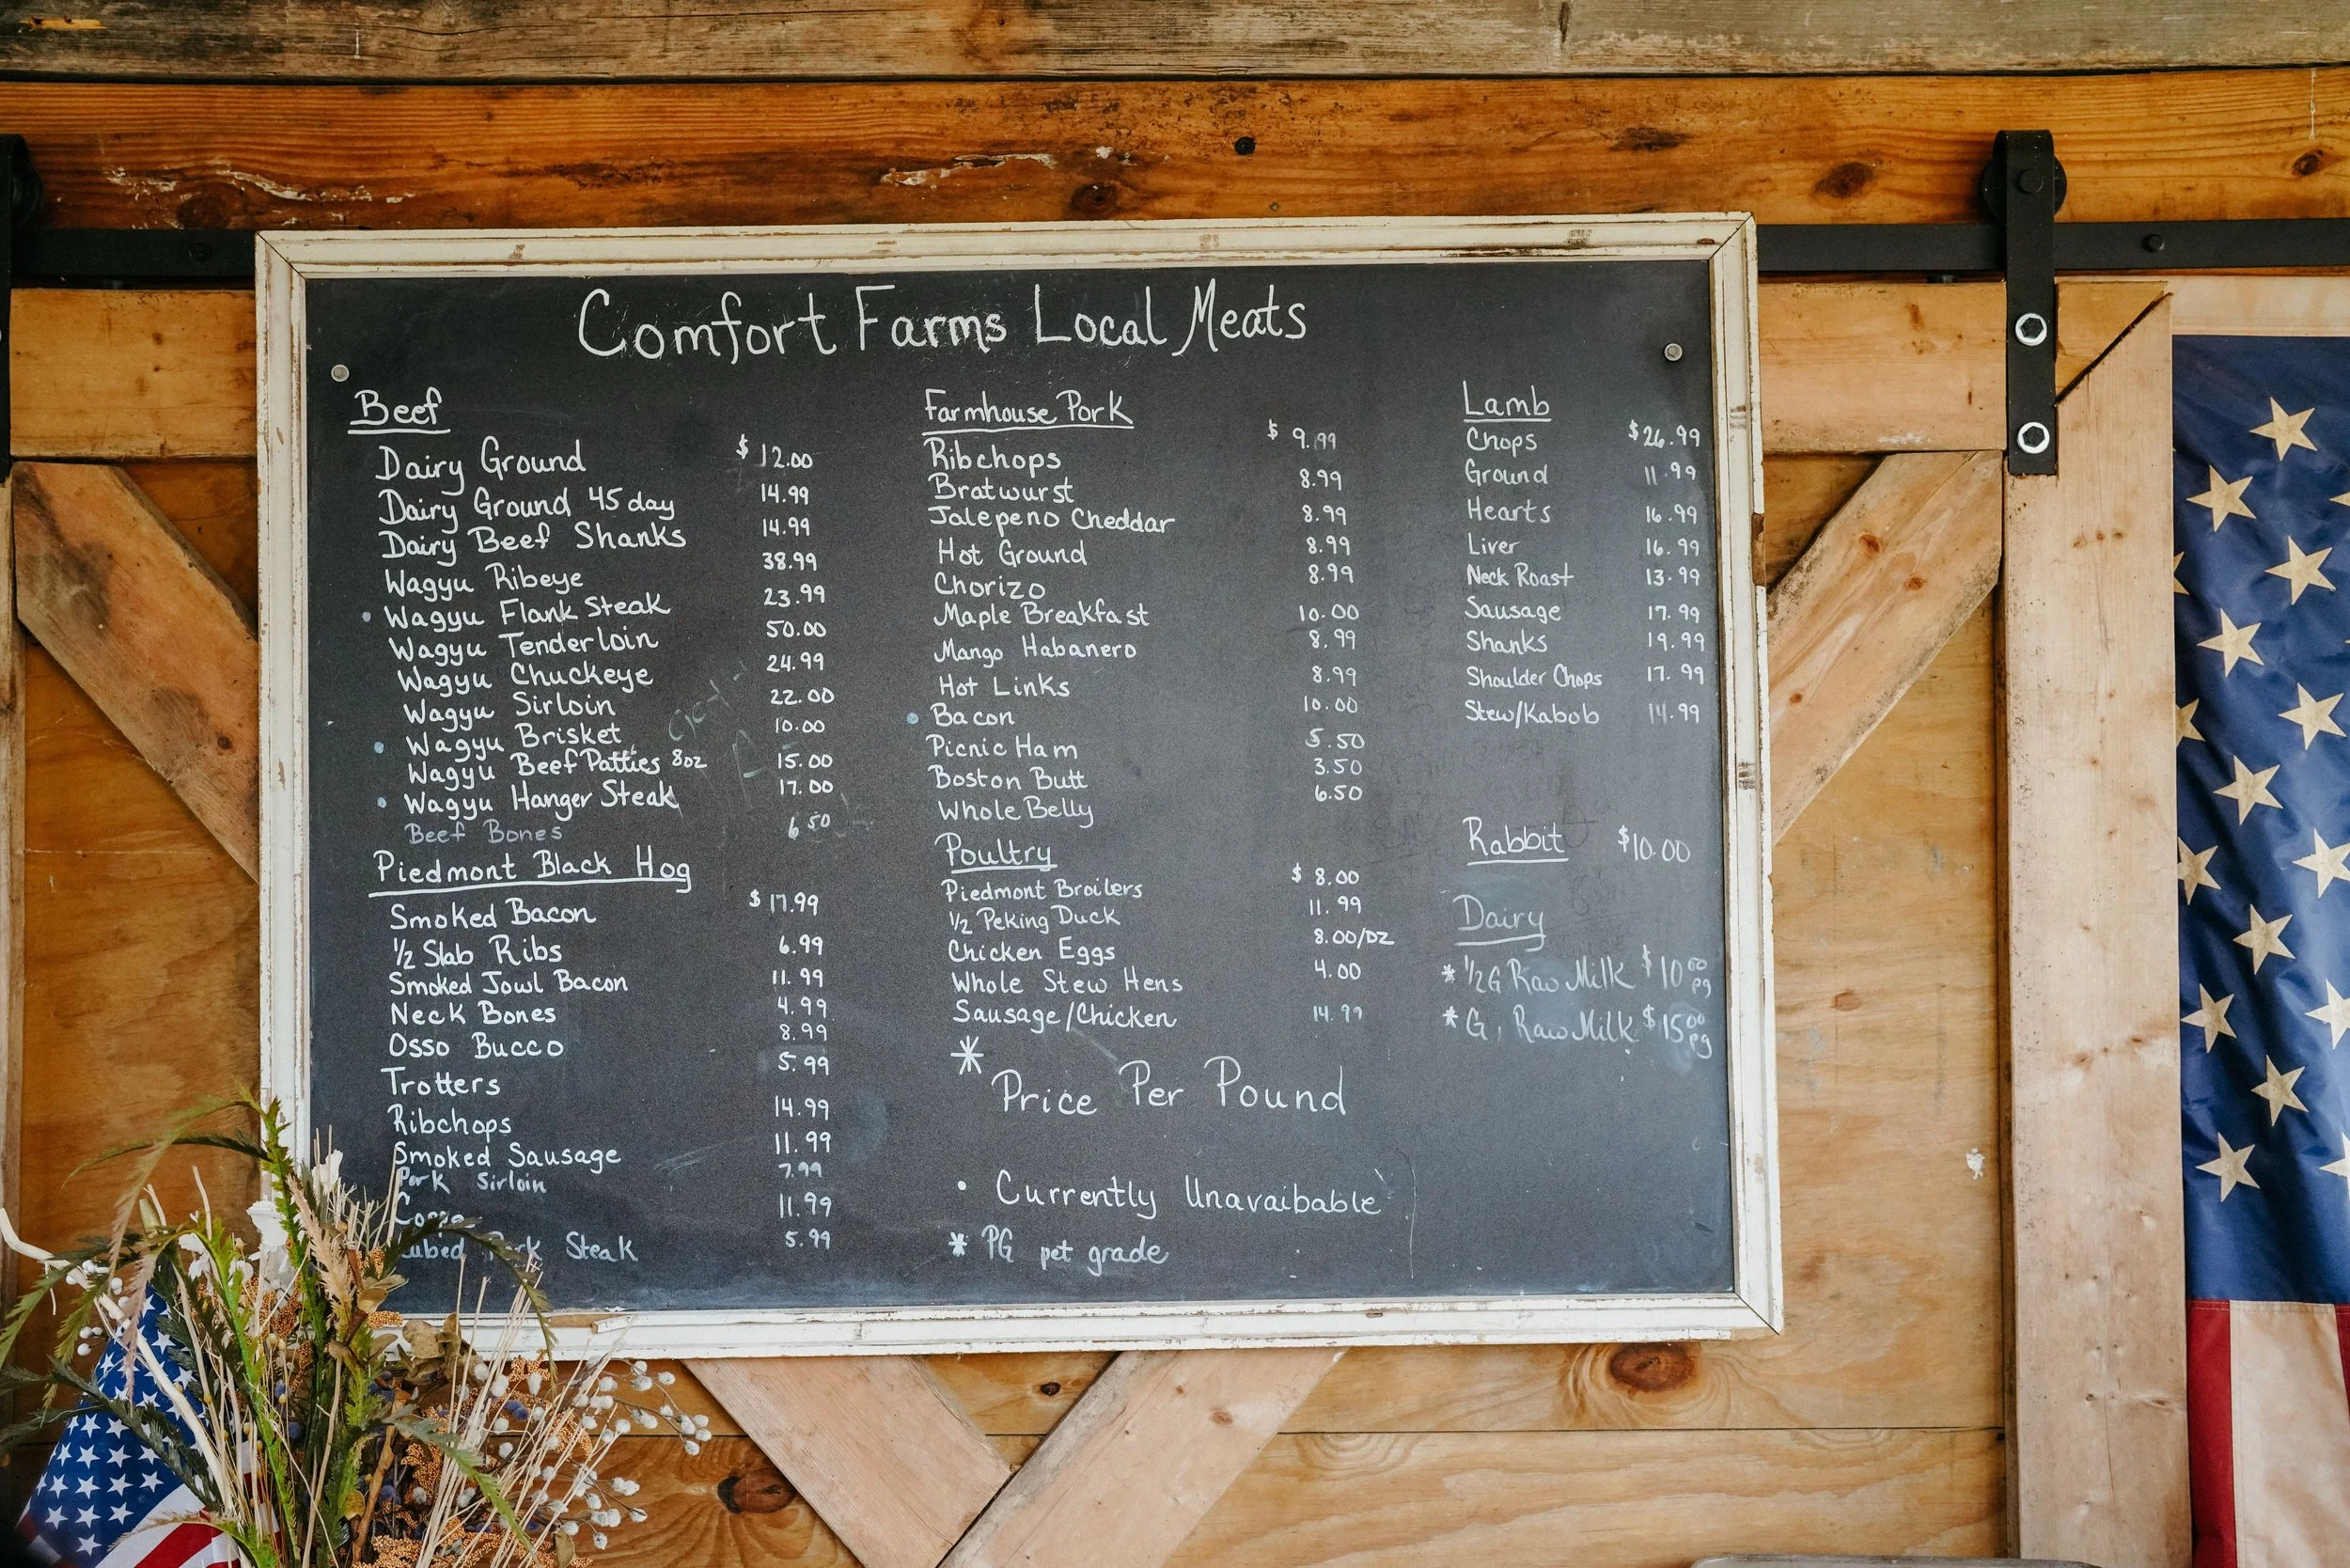 Comfort Farms Local Meats
Beef
Dairy Ground $ 12.00
Dairy Ground 45 day 14.99
Dairy Beef Shanks 14.99
Wagyu Ribeye 38.99
• Wagyu Flank Steak 23.99
Wagyu Tenderloin 50.00
Wagyu Chuckeye 24.99
Wagyu Sirloin 22.00
• Wagyu Brisket 10.00
Wagyu Beef Patties 8oz 15.00
• Wagyu Hanger Steak 17.00
Beef Bones 6.50
Piedmont Black Hog
Smoked Bacon $ 17.99
1/2 Slab Ribs 6.99
Smoked Jowl Bacon 11.99
Neck Bones 4.99
Osso Bucco 8.99
Trotters 5.99
Ribchops 14.99
Smoked Sausage 11.99
Pork Sirloin 7.99
11.99
Cubed Pork Steak 5.99
Farmhouse Pork
Ribchops $ 9.99
Bratwurst 8.99
Jalepeno Cheddar 8.99
Hot Ground 8.99
Chorizo 8.99
Maple Breakfast 10.00
Mango Habanero 8.99
Hot Links 8.99
• Bacon 10.00
Picnic Ham 5.50
Boston Butt 3.50
Whole Belly 6.50
Poultry
Piedmont Broilers $ 8.00
1/2 Peking Duck 11.99
Chicken Eggs 8.00/DZ
Whole Stew Hens 4.00
Sausage/Chicken 14.99
* Price Per Pound
• Currently Unavaibable
* PG pet grade
Lamb
Chops $26.99
Ground 11.99
Hearts 16.99
Liver 16.99
Neck Roast 13.99
Sausage 17.99
Shanks 19.99
Shoulder Chops 17.99
Stew/Kabob 14.99
Rabbit $10.00
Dairy
* 1/2G Raw Milk $10.00 pg
* G. Raw Milk $15.00 pg